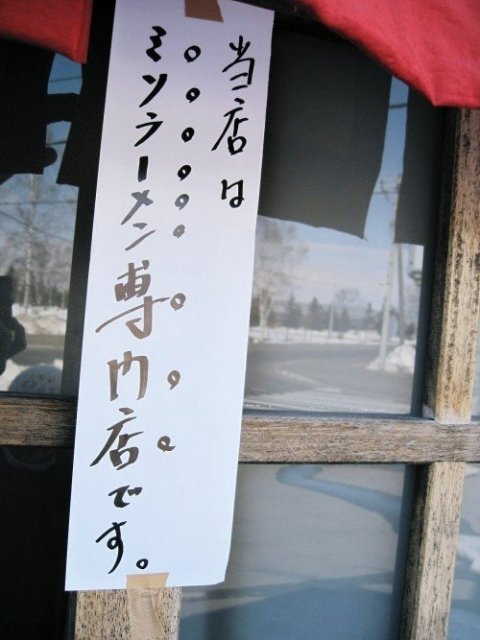 当店は
ミソラーメン専門店です。